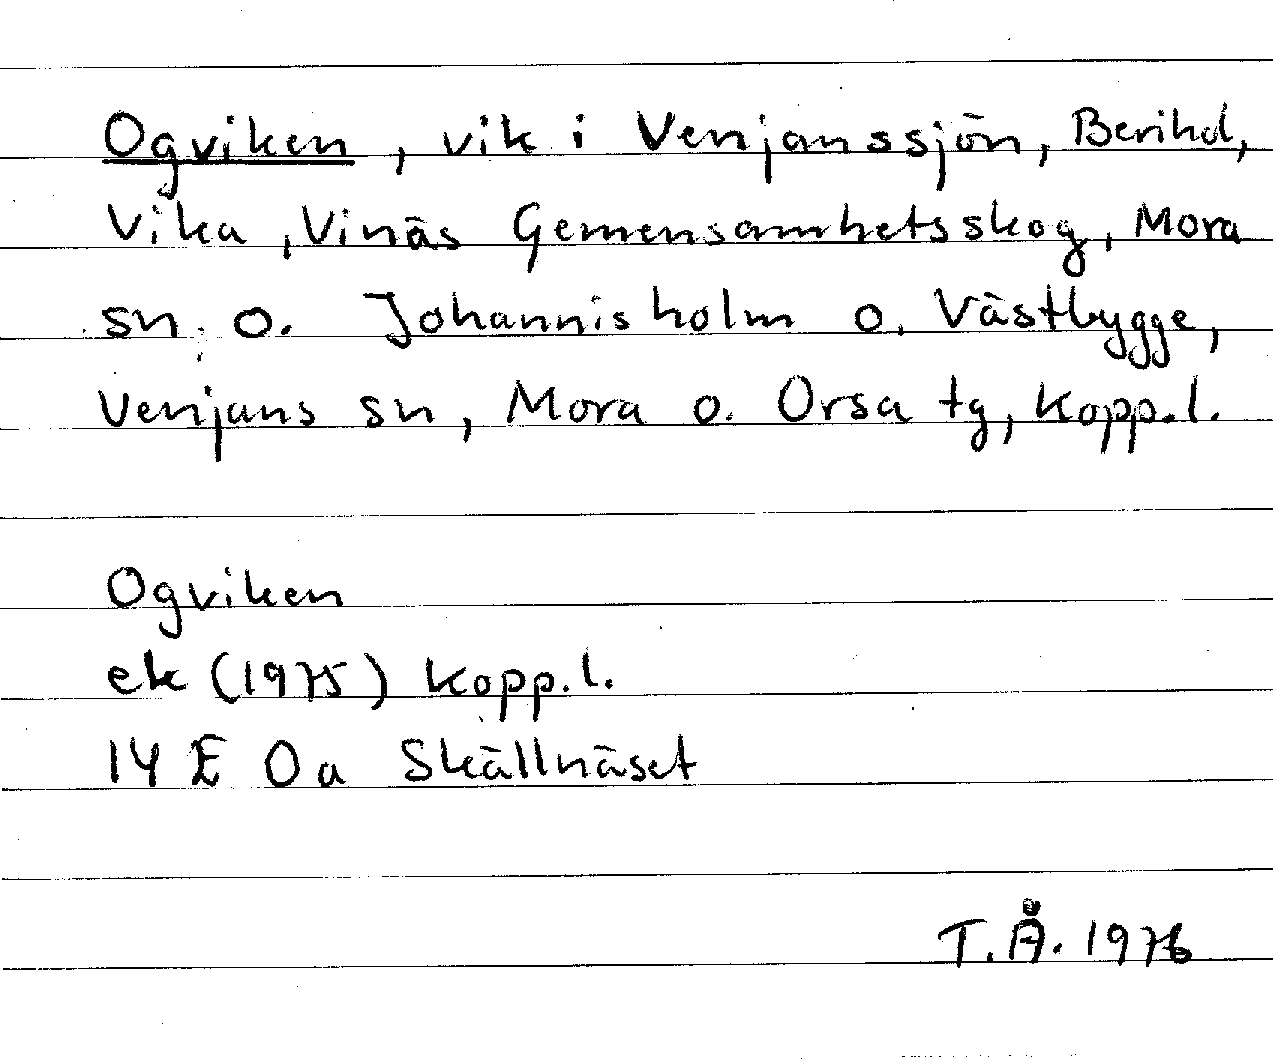 Ogviken, vik i Venjanssjön, Berihol,
Vika, Vinäs Gemensamhetsskog, Mora
sn. o. Johannisholm o. Västbygge,
Venjans sn, Mora o. Orsa tg, Kopp.l.
Ogviken
ek (1975) Kopp.l.
14 E 0a Skällnäset
T.Å. 1976